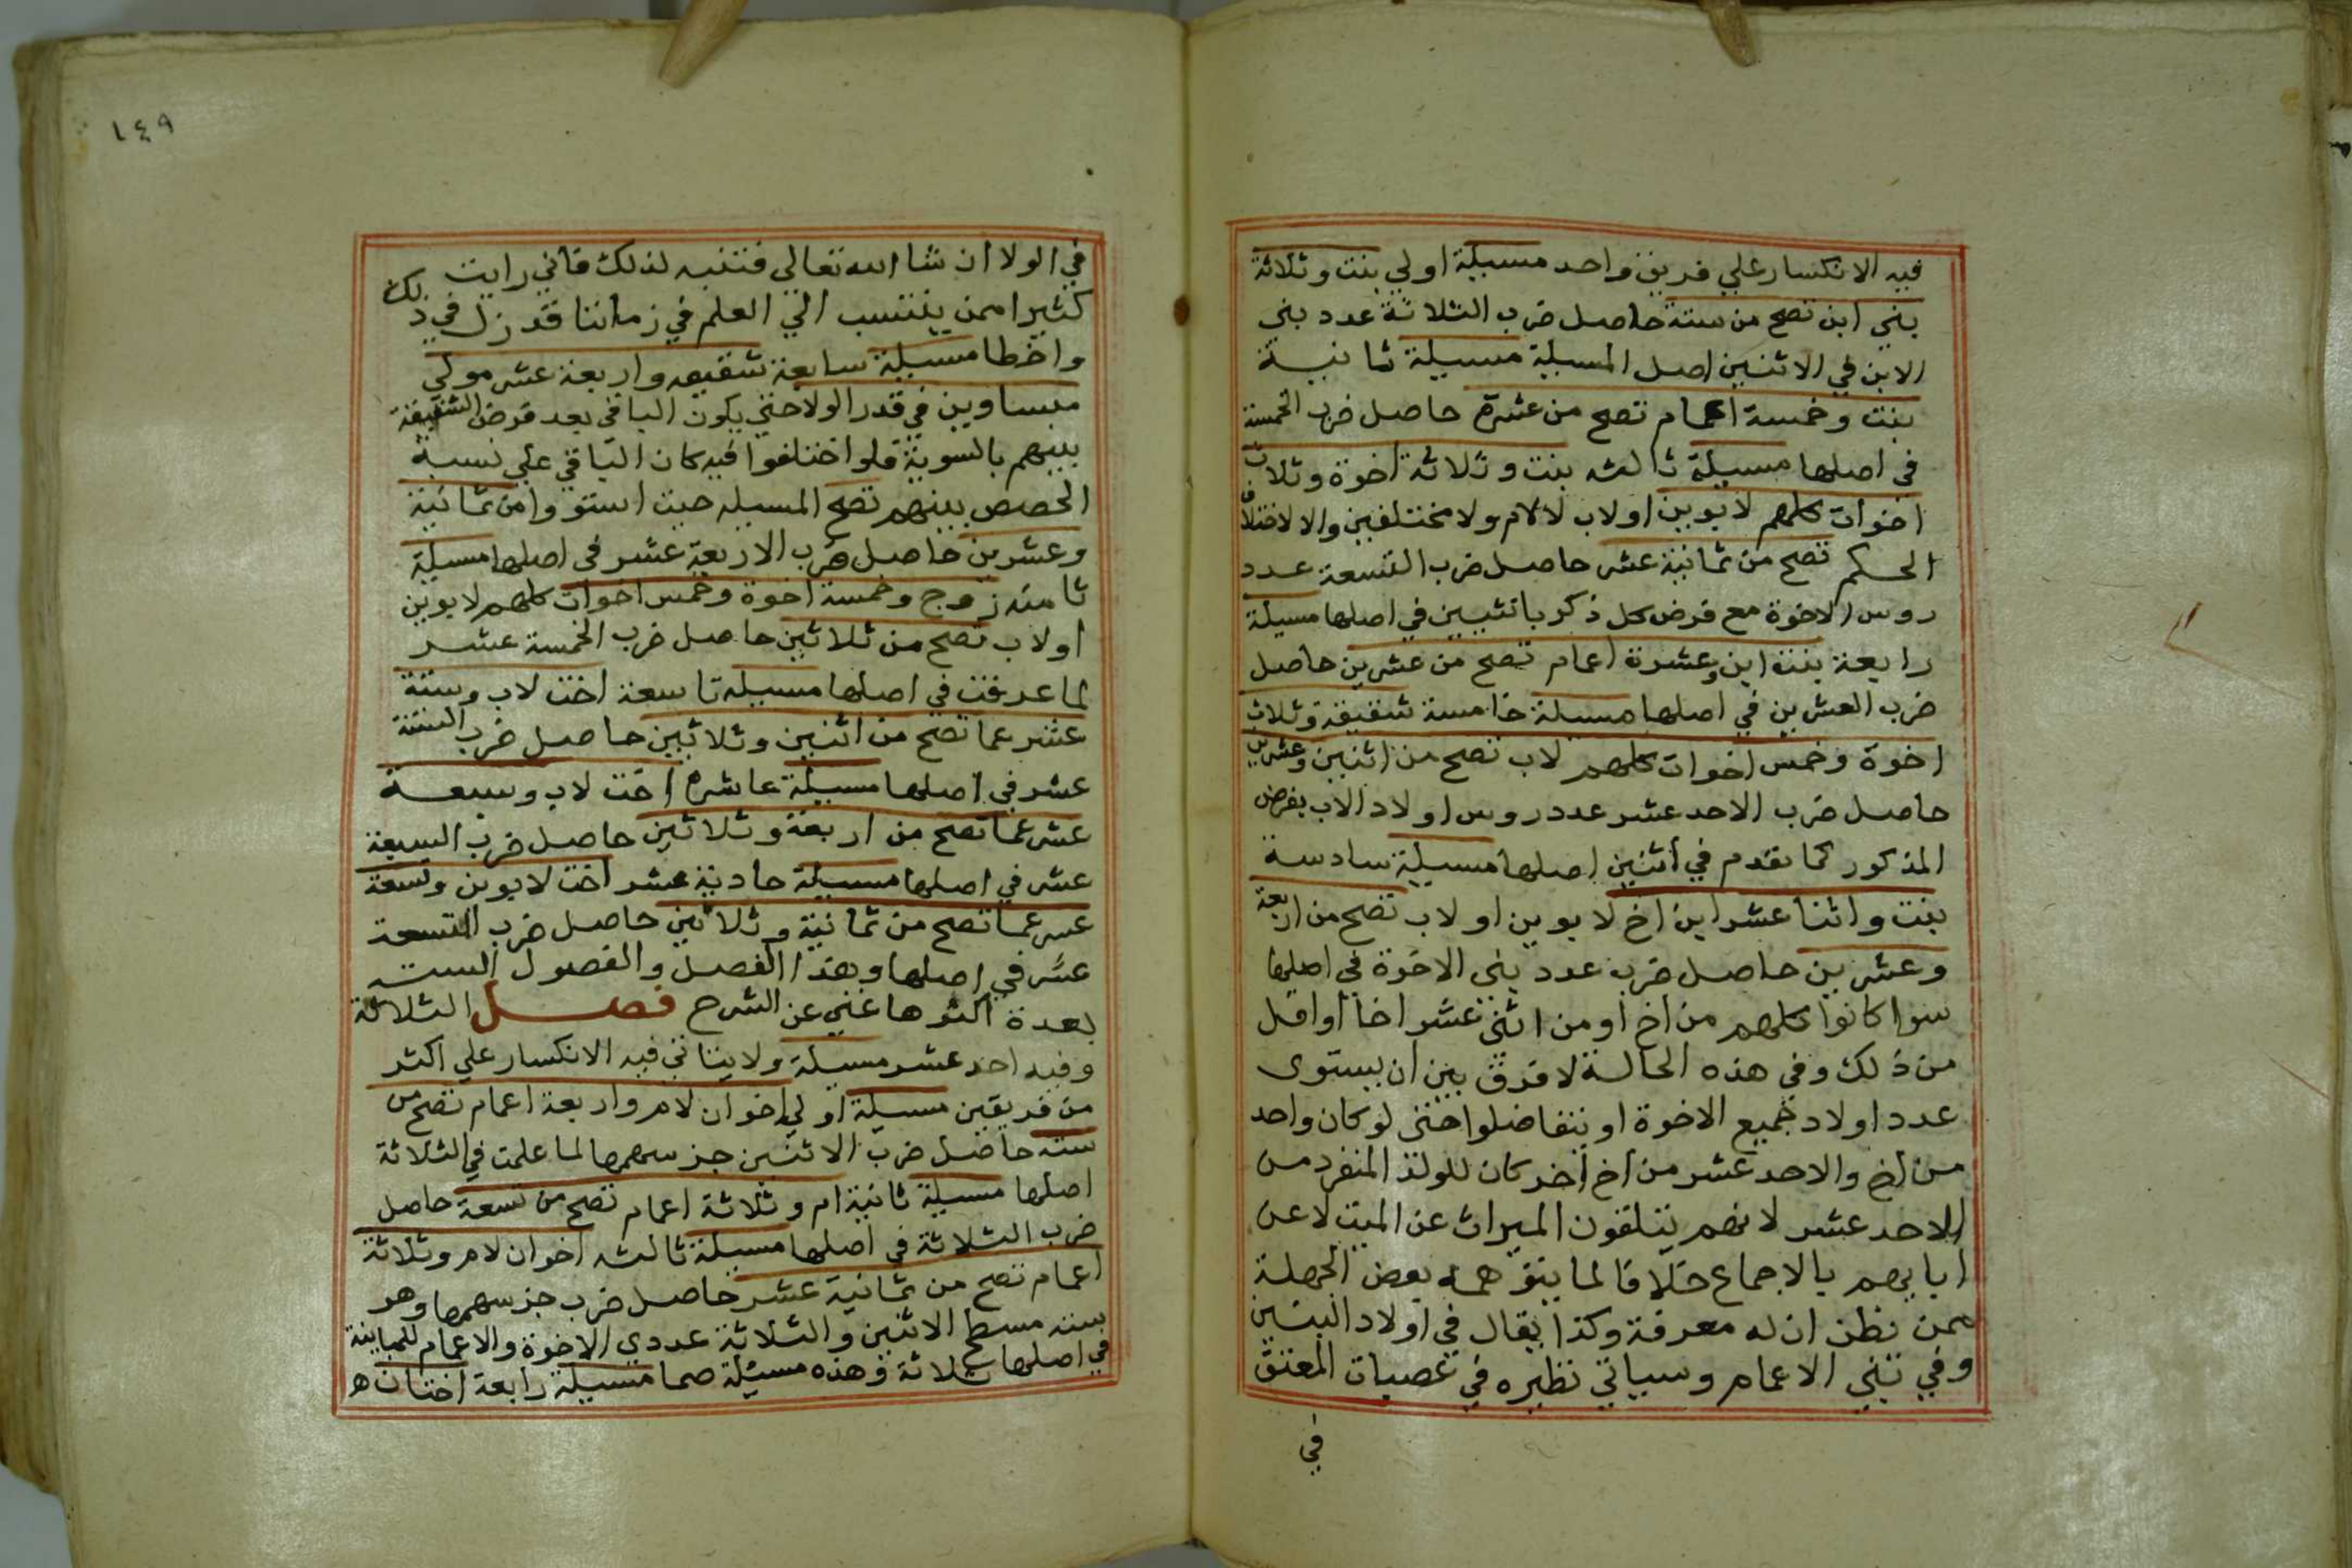 فيه الانكسار علي فريق واحد مسيلة اولي بنت وثلاثة
بني ابن تصح من ستة حاصل ضرب الثلاثة عدد بني
الابن في الاثنين اصل المسيلة مسيلة ثانية
بنت وخمسة اعمام تصح من عشرة حاصل ضرب الخمسة
في اصلها مسيلة ثالثه بنت وثلاثة اخوة وثلاث
اخوات كلهم لابوين اولاب لالام ولا مختلفين والا لاختلاف
الحكم تصح من ثمانية عشر حاصل ضرب التسعة عدد
روس الاخوة مع فرض كل ذكر بانثيين في اصلها مسيلة
رابعة بنت ابن وعشرة اعمام تصح من عشرين حاصل
ضرب العشرين في اصلها مسيلة خامسة شقيقة وثلاث
اخوة وخمس اخوات كلهم لاب تصح من اثنين وعشرين
حاصل ضرب الاحد عشر عدد روس اولاد الاب بفرض
المذكور كما تقدم في اثنين اصلها مسيلة سادسة
بنت واثنا عشر ابن اخ لابوين اولاب تصح من اربعة
وعشرين حاصل ضرب عدد بني الاخوة في اصلها
سوا كانوا كلهم من اخ او من اثني عشر اخا او اقل
من ذلك وفي هذه الحالة لا فرق بين ان يستوى
عدد اولاد جميع الاخوة او يتفاضلوا حتى لو كان واحد
من اخ والاحد عشر من اخ اخر كان للولد المنفرد من
الاحد عشر لانهم يتلقون الميراث عن الميت لا عن
ابايهم بالاجماع خلافا لما يتوهمه بعض الجهلة
ممن نظن ان له معرفة وكذا يقال في اولاد البنين
وفي بني الاعمام وسياتي نظيره في عصبات المعتق
في
١٤٩
في الولا ان شا الله تعالي فتنبه لذلك فاني رايت
كثيرا ممن ينتسب الي العلم في زماننا قد زل في ذلك
واخطا مسيلة سابعة شقيقه واربعة عشر مولي
متساوين في قدر الولا حتي يكون الباقي بعد فرض الشقيقة
بينهم بالسوية فلو اختلفوا فيه كان الباقي علي نسبة
الحصص بينهم تصح المسيله حيث استووا من ثمانية
وعشرين حاصل ضرب الاربعة عشر في اصلها مسيلة
ثامنه زوج وخمسة اخوة وخمس اخوات كلهم لابوين
اولاب تصح من ثلاثين حاصل ضرب الخمسة عشر
لما عرفت في اصلها مسيله تاسعة اخت لاب وستة
عشر عما تصح من اثنين وثلاثين حاصل ضرب الستة
عشر في اصلها مسيلة عاشرة اخت لاب وسبعة
عشر عما تصح من اربعة وثلاثين حاصل ضرب السبعة
عشر في اصلها مسيلة حادية عشر اخت لابوين وتسعة
عشر عما تصح من ثمانية وثلاثين حاصل ضرب التسعة
عشر في اصلها وهذا الفصل والفصول الست
بعدة اكثرها غني عن الشرح فصل الثلاثة
وفيه احد عشر مسيلة ولا يتاتي فيه الانكسار علي اكثر
من فريقين مسيلة اولي اخوان لام واربعة اعمام تصح من
سته حاصل ضرب الاثنين جز سهمها لما علمت في الثلاثة
اصلها مسيلة ثانية ام وثلاثة اعمام تصح من تسعة حاصل
ضرب الثلاثة في اصلها مسيلة ثالثه اخوان لام وثلاثة
اعمام تصح من ثمانية عشر حاصل ضرب جز سهمها وهو
سته مسطح الاثنين والثلاثة عددي الاخوة والاعمام للمباينة
في اصلها ثلاثة وهذه مسئلة صما مسيلة رابعة اختان